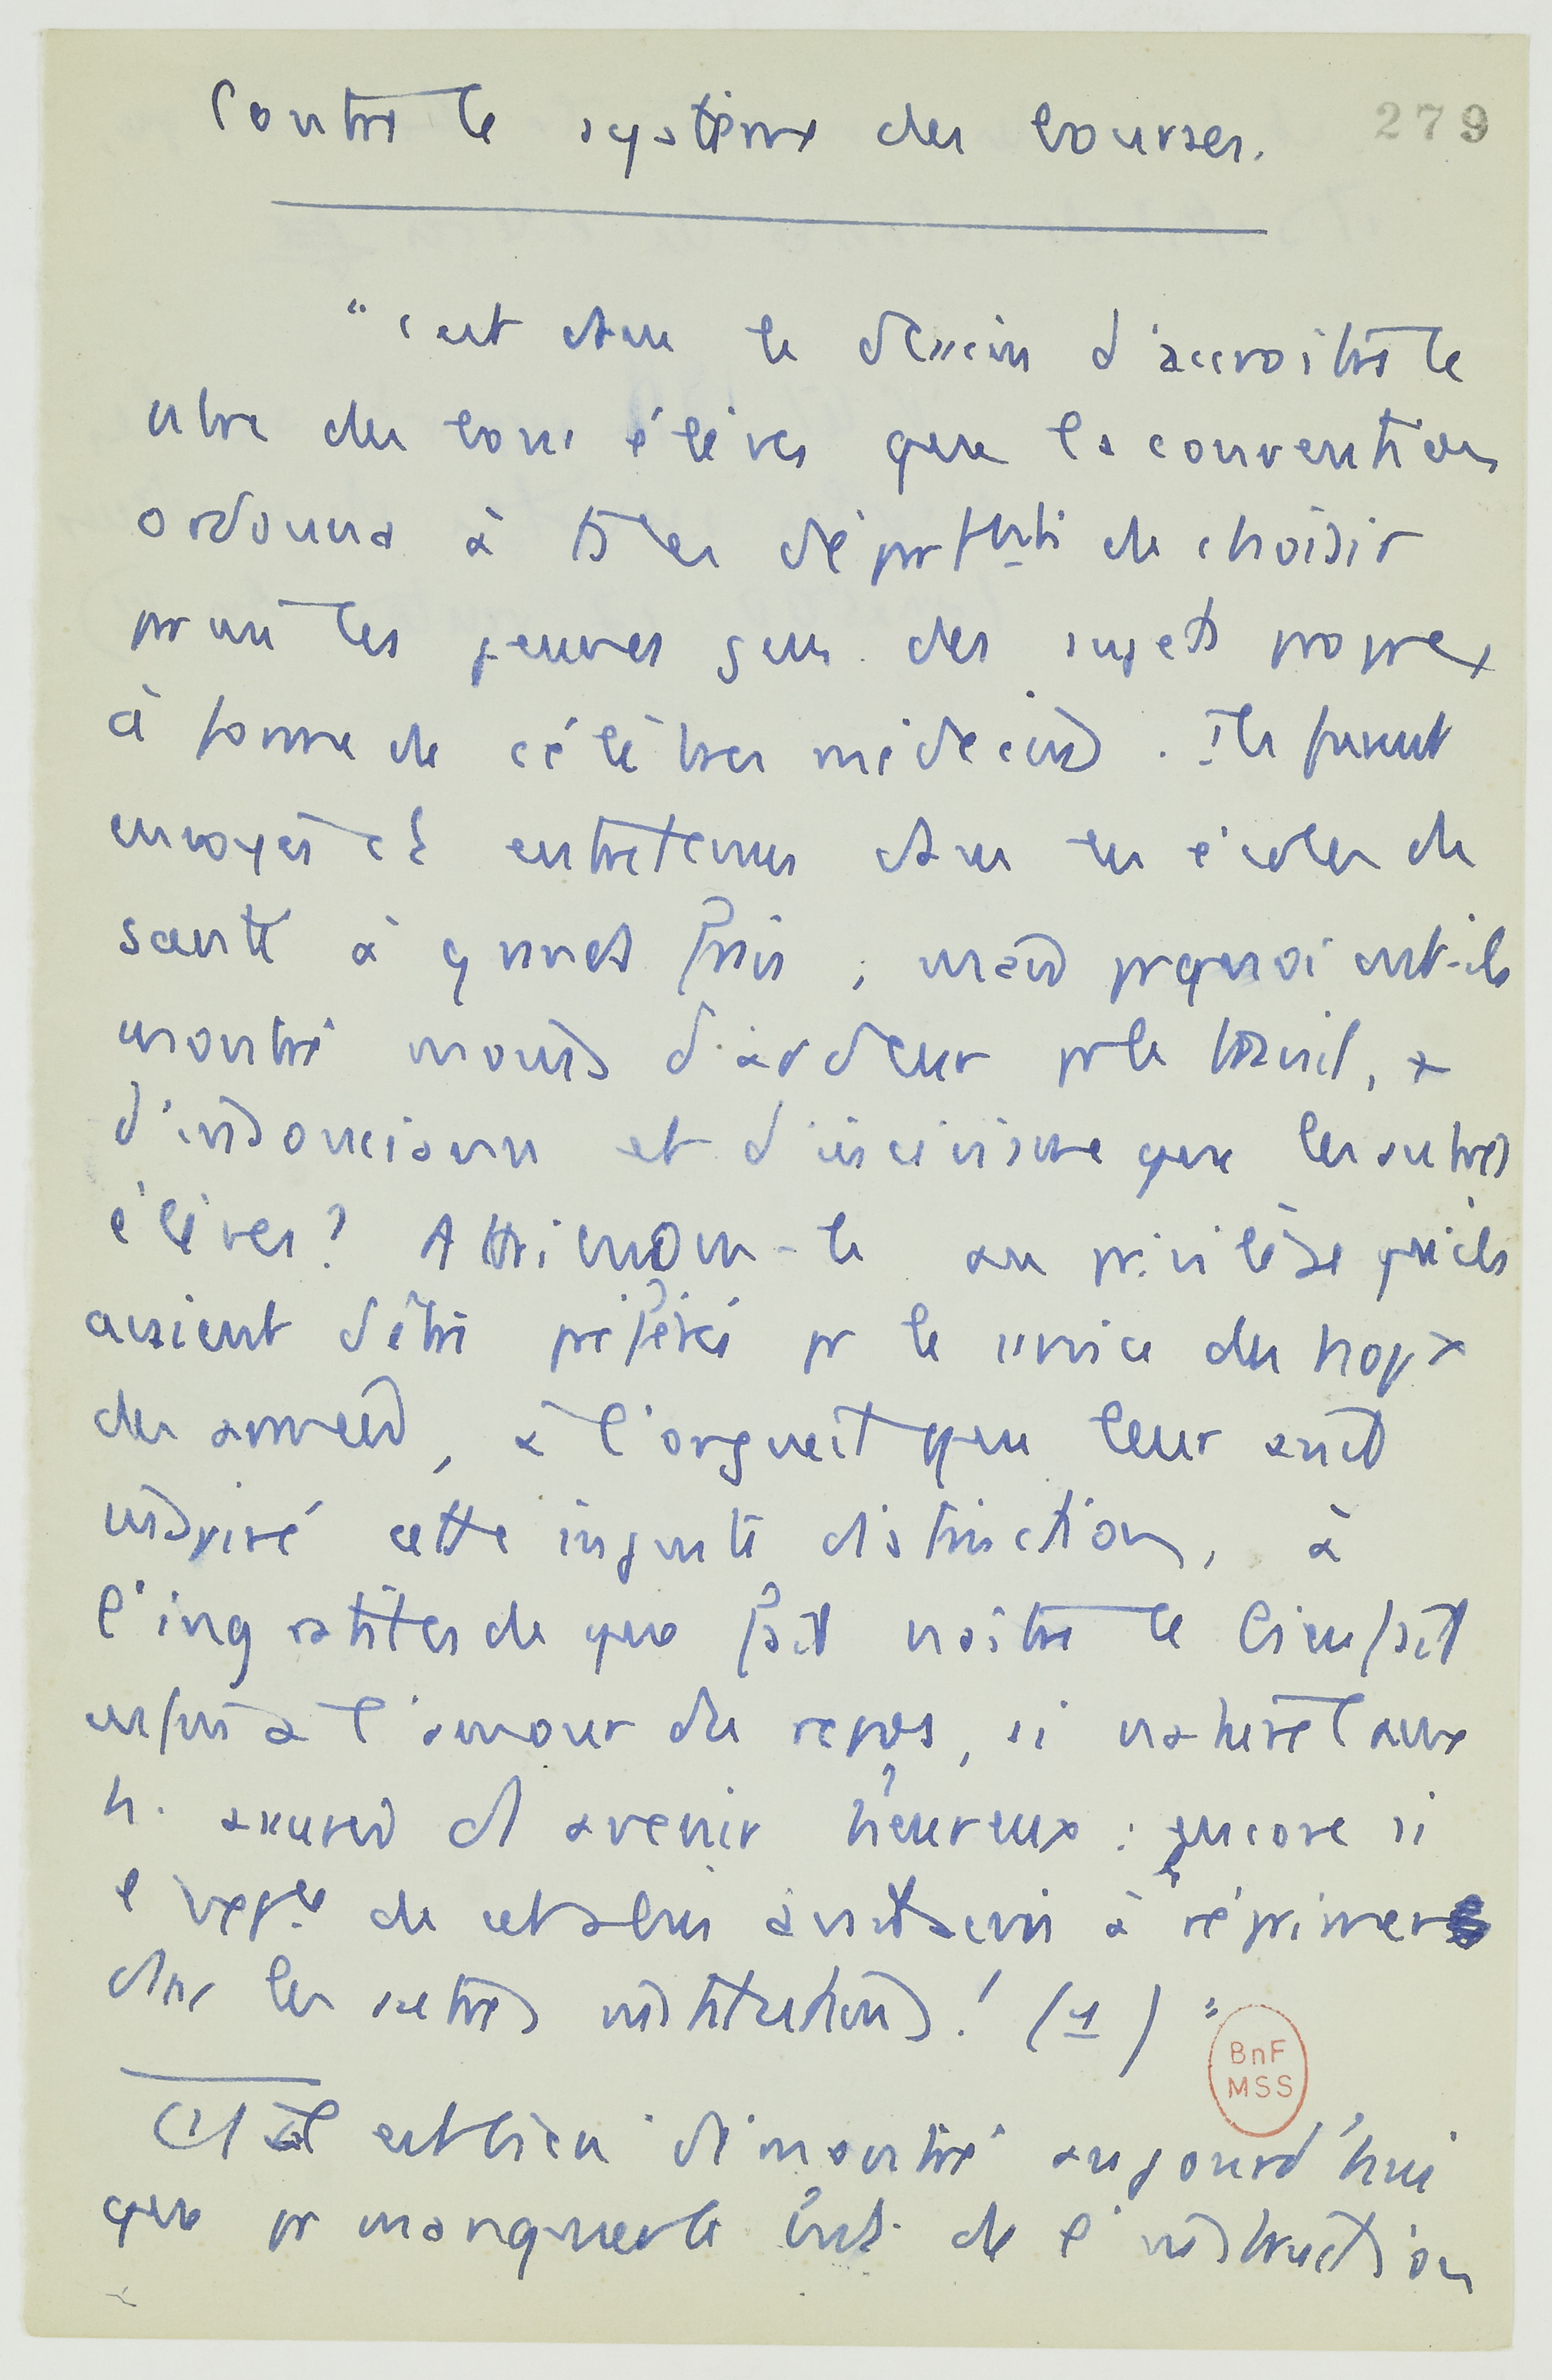 Contre le système des bourses.
279
"c'est dans le dessein d'accroître le
nbre des bons élèves que la convention
ordonna à ts les déprtmts de choisir
prmi les jeunes gens des sujets propres
à former de célèbres médecins. Ils furent
envoyés et entretenus dans les écoles de
santé à grands frais ; mais prquoi ont-ils
montré moins d'ardeur pr le travail, +
d'insouciance et d'incivisme que les autres
élèves? Attribuons-le au privilège qu'ils
avaient d'être préférés pr le service des hopx
des armées, à l'orgueil que leur avait
inspiré cette injuste distinction, à
l'ingratitude que fait naître le bienfait
enfin à l'amour du repos, si naturel aux
h. assurés d'1 avenir heureux : encore si
l'expce de cet abus avait servi à réprimer
dns les autres institutions! (1)"
(1) il est bien démontré aujourd'hui
que pr manquer le but de l'instruction
BnF
MSS